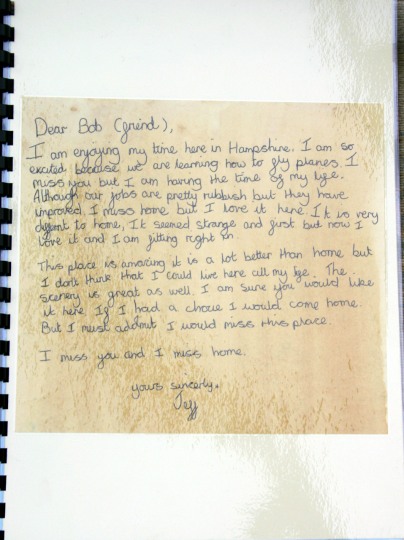 Dear Bob (freind),
I am enjoying my time here in Hampshire. I am so
excited because we are learning how to fly planes. I
miss you but I am having the time of my lyfe.
Although our jobs are pretty rubbish but they have
improved. I miss home but I love it here. It is very
diffrent to home, It seemed strange and first but now I
love it and I am fitting right in.
This place is amazing it is a lot better than home but
I dont think that I could live here all my lfe. The
scenery is great as well. I am sure you would like
it here. If I had a choice I would come home.
But I must addmit I would miss this place.
I miss you and I miss home.
yours sincerly,
Jeff